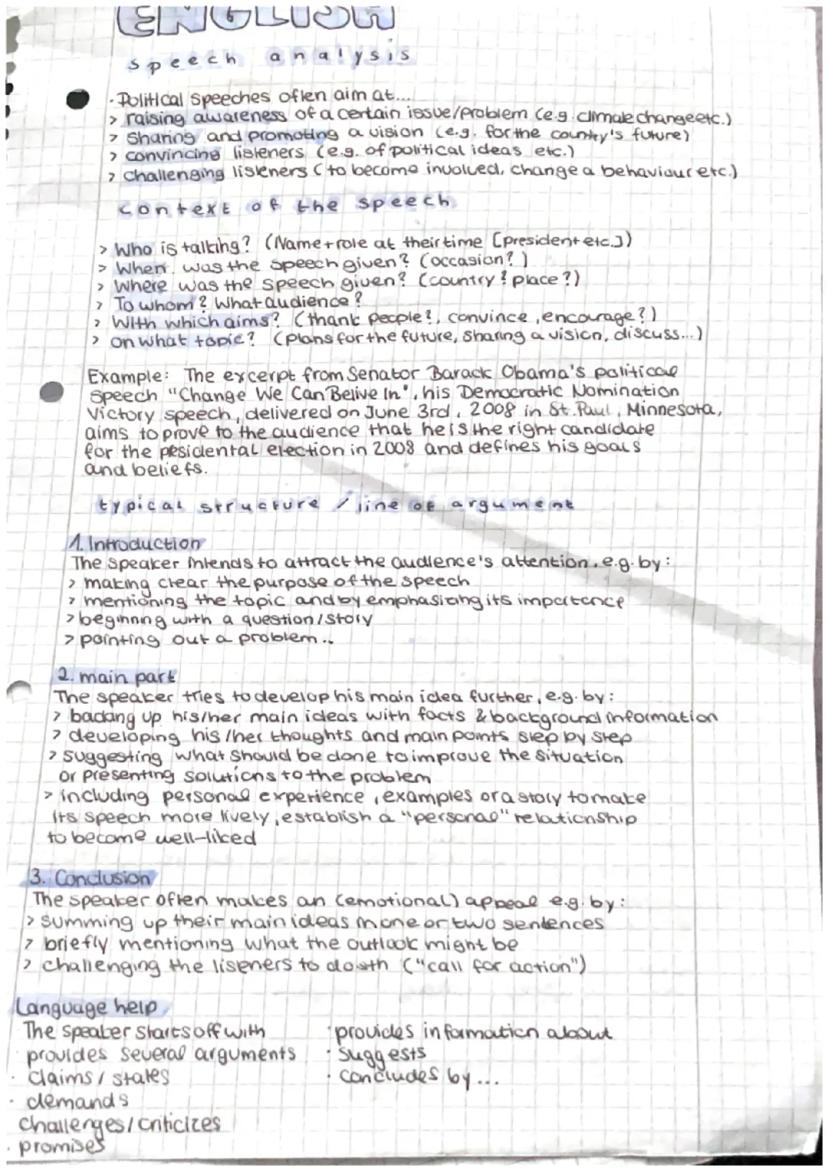 ENGLISH
speech analysis
· Political speeches often aim at...
> raising awareness of a certain issue/problem (e.g. climate change etc.)
> sharing and promoting a vision (e.g. for the country's future)
> convincing listeners (e.g. of political ideas etc.)
> challenging listeners (to become involved, change a behaviour etc.)
context of the speech
> Who is talking? (Name + role at their time [president etc.])
> When was the speech given? (occasion?)
> Where was the speech given? (country? place?)
> To whom? What audience?
> With which aims? (thank people?, convince, encourage?)
> on what topic? (plans for the future, sharing a vision, discuss...)
Example: The excerpt from Senator Barack Obama's political
speech "Change We Can Belive In", his Democratic Nomination
Victory speech, delivered on June 3rd, 2008 in St. Paul, Minnesota,
aims to prove to the audience that he is the right candidate
for the pesidental election in 2008 and defines his goals
and beliefs.
typical structure / line of argument
1. Introduction
The speaker intends to attract the audience's attention, e.g. by:
> making clear the purpose of the speech
> mentioning the topic and by emphasizing its importance
> beginning with a question/story
> pointing out a problem..
2. main part
The speaker tries to develop his main idea further, e.g. by:
> backing up his/her main ideas with facts & background information
> developing his/her thoughts and main points step by step
> suggesting what should be done to improve the situation
or presenting solutions to the problem
> including personal experience, examples or a story to make
its speech more lively, establish a "personal" relationship
to become well-liked
3. Conclusion
The speaker often makes an (emotional) appeal e.g. by:
> summing up their main ideas in one or two sentences
> briefly mentioning what the outlook might be
> challenging the listeners to do sth ("call for action")
Language help
The speaker starts off with
provides several arguments
· claims / states
· demands
challenges/criticizes
· promises
· provides information about
· suggests
· concludes by...